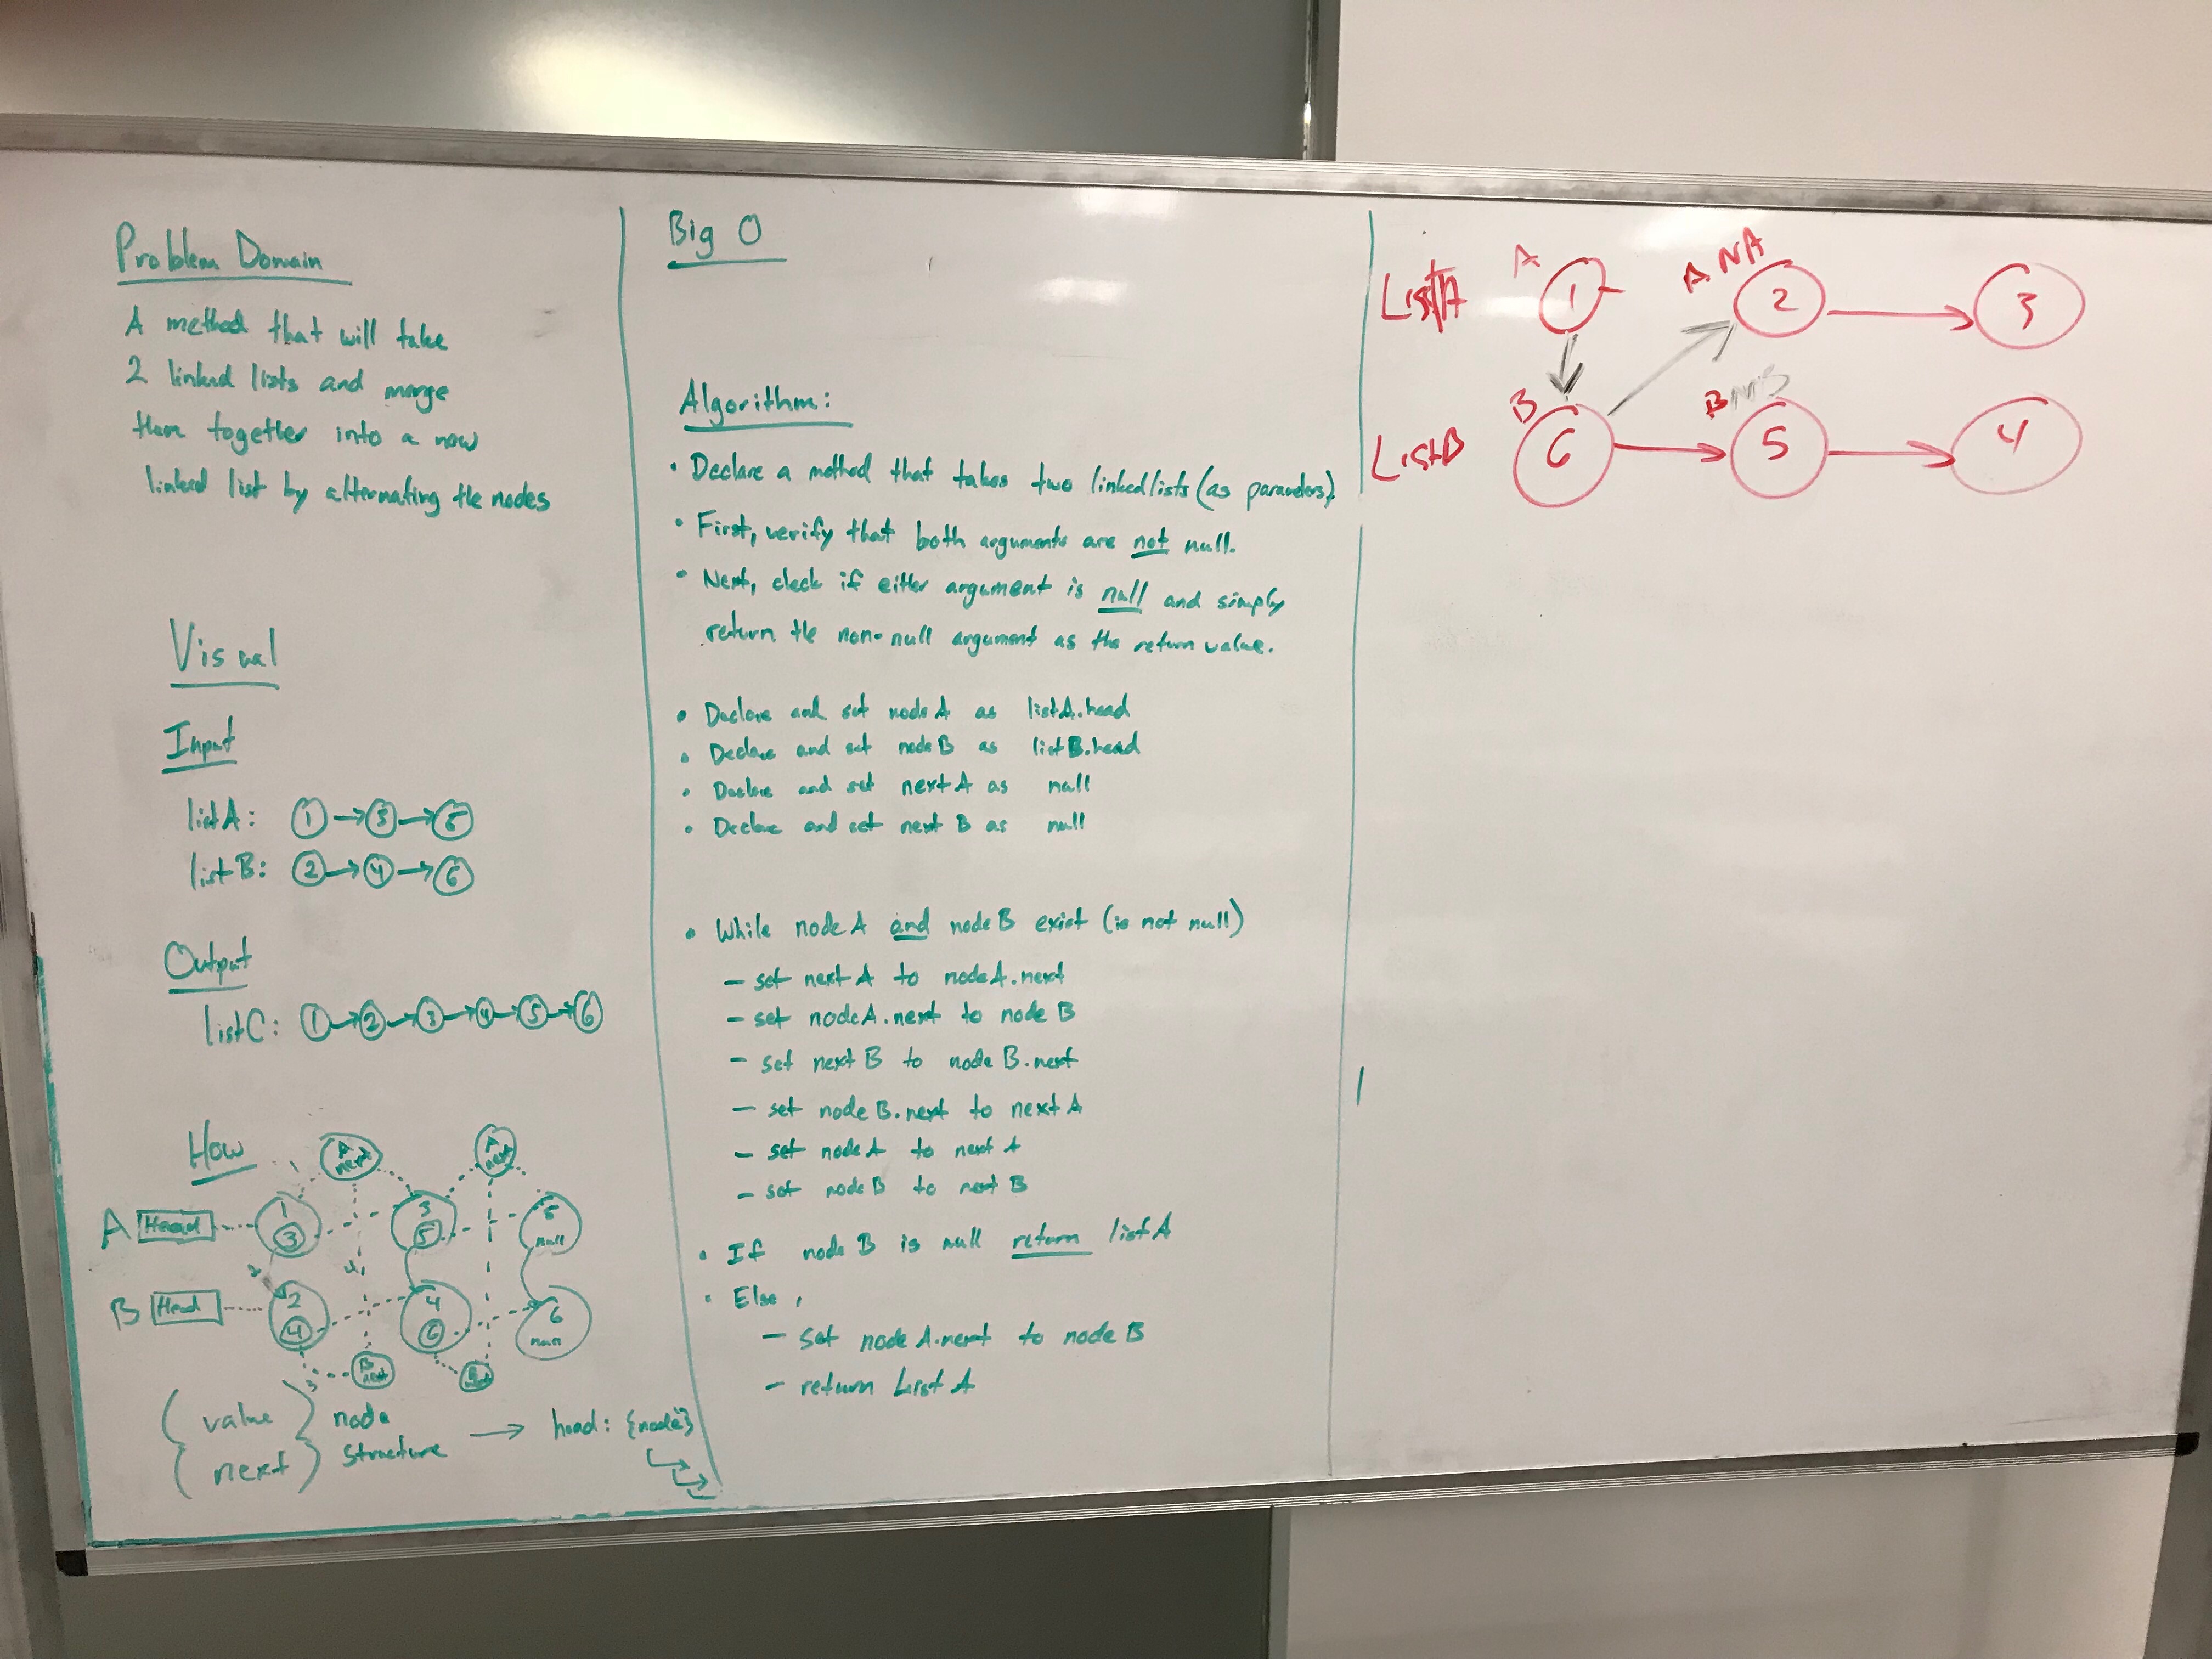 Problem Domain
A method that will take
2 linked lists and merge
them together into a new
linked list by alternating the nodes
Visual
Input
listA: 1 → 3 → 5
listB: 2 → 4 → 6
Output
listC: 1 → 2 → 3 → 4 → 5 → 6
How
A next
A next
A Head
1
3
3
5
5
null
2
4
B Head
2
4
4
6
6
null
3
B next
B next
{ value } node
{ next } structure → head: {node}
Big O
Algorithm:
• Declare a method that takes two linkedlists (as parameters).
• First, verify that both arguments are not null.
• Next, check if either argument is null and simply
return the non-null argument as the return value.
• Declare and set node A as listA.head
• Declare and set node B as listB.head
• Declare and set next A as null
• Declare and set next B as null
• While node A and node B exist (is not null)
– set next A to nodeA.next
– set nodeA.next to node B
– set next B to node B.next
– set node B.next to next A
– set node A to next A
– set node B to next B
• If node B is null return listA
• Else,
– set node A.next to node B
– return List A
ListA
A
1
A NA
2 → 3
ListB
B
6 →
B
5 → 4